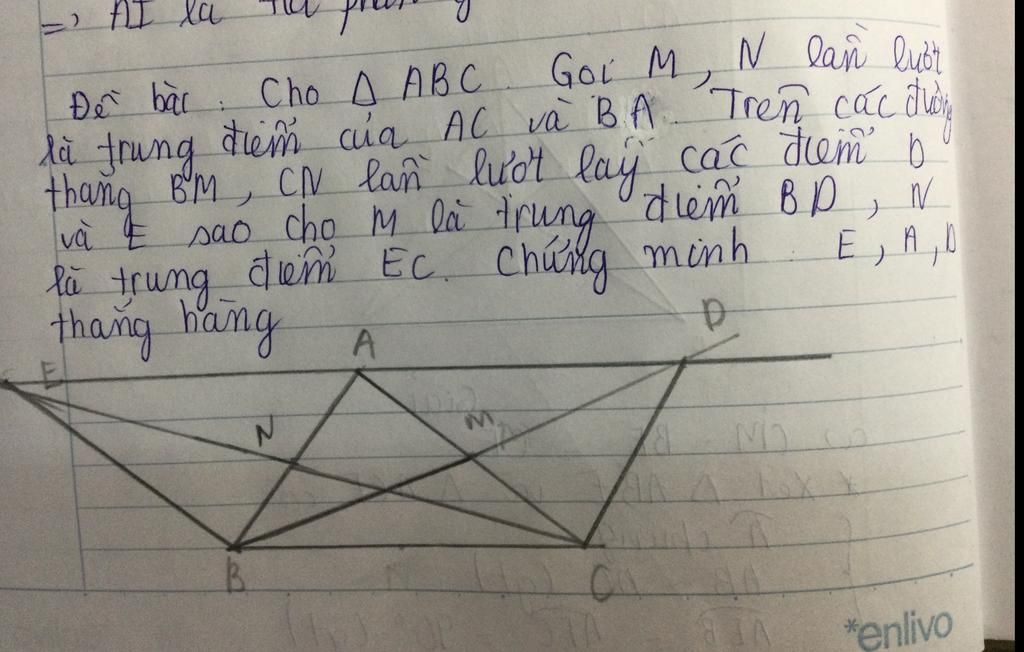 => AI là tia phân g
Đề bài : Cho Δ ABC. Gọi M, N lần lượt
là trung điểm của AC và BA. Trên các đường
thẳng BM, CN lần lượt lấy các điểm D
và E sao cho M là trung điểm BD, N
là trung điểm EC. Chứng minh : E, A, D
thẳng hàng
E A D
N M
B C
*enlivo